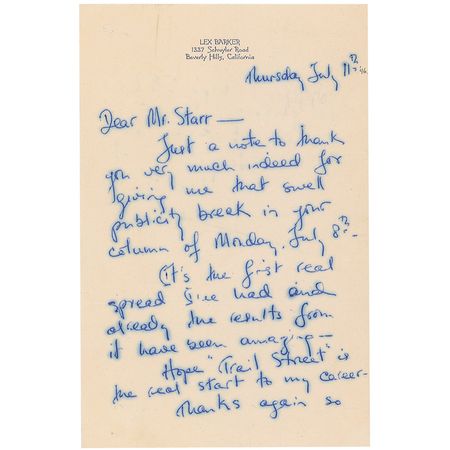 LEX BARKER
1337 Schuyler Road
Beverly Hills, California
Thursday July 11th '46
Dear Mr. Starr —
Just a note to thank
you very much indeed for
giving me that swell
publicity break in your
column of Monday, July 8th —
It's the first real
spread I've had and
already the results from
it have been amazing —
Hope "Trail Street" is
the real start to my career —
Thanks again so